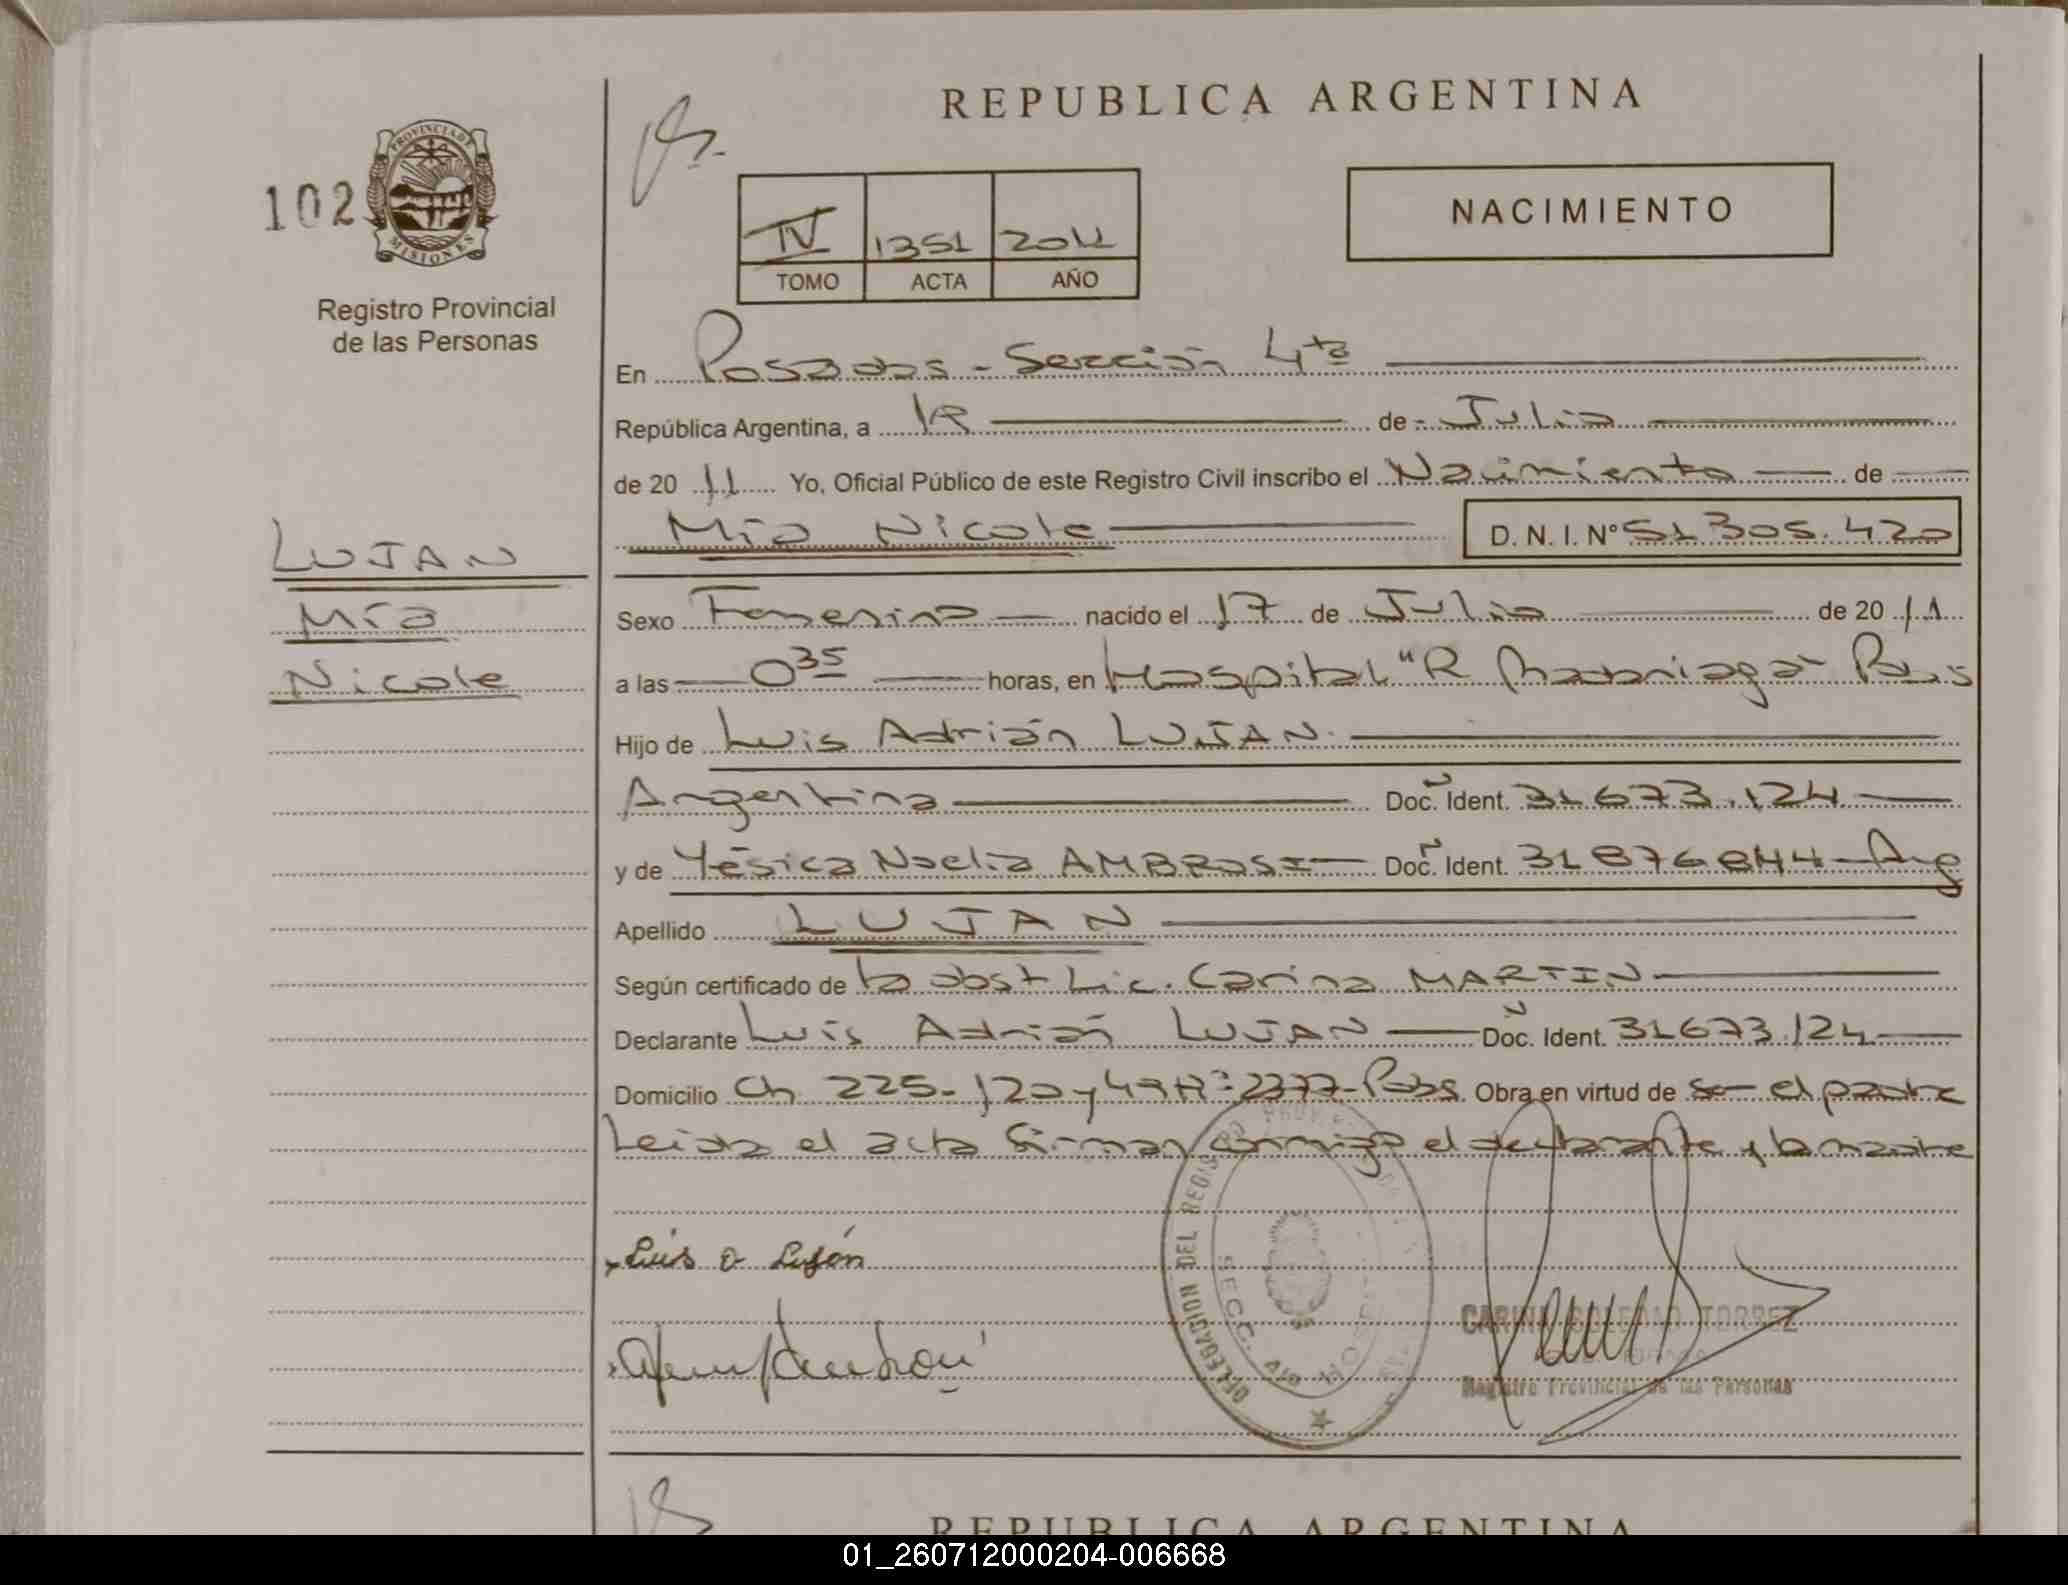 REPUBLICA ARGENTINA
102
PROVINCIA DE
MISIONES
Registro Provincial
de las Personas
IV 1351 2011
TOMO ACTA AÑO
NACIMIENTO
En Posadas - Sección 4ta
República Argentina, a 18 de Julio
de 20 11 Yo, Oficial Público de este Registro Civil inscribo el Nacimiento de
Mía Nicole D. N. I. Nº 51 305.420
LUJAN
Mía
Nicole
Sexo Femenino nacido el 17 de Julio de 20 11
a las 0 35 horas, en Hospital "R Madariaga" Pdas
Hijo de Luis Adrián LUJAN
Argentina Doc. Ident. 31 673.124
y de Yésica Noelia AMBROSI Doc. Ident. 31 876 844 - Arg
Apellido LUJAN
Según certificado de la obst Lic. Carina MARTIN
Declarante Luis Adrián LUJAN Doc. Ident. 31 673.124
Domicilio Ch 225 - 120 y 49 Nº 2377 - Pdas. Obra en virtud de ser el padre
Leida el acta firman conmigo el declarante y la madre
Luis a Luján
DELEGACION DEL REGISTRO
SECC.
HOSPIT
CARINA SOLEDAD TORREZ
Registro Provincial de las Personas
REPUBLICA ARGENTINA
01_260712000204-006668